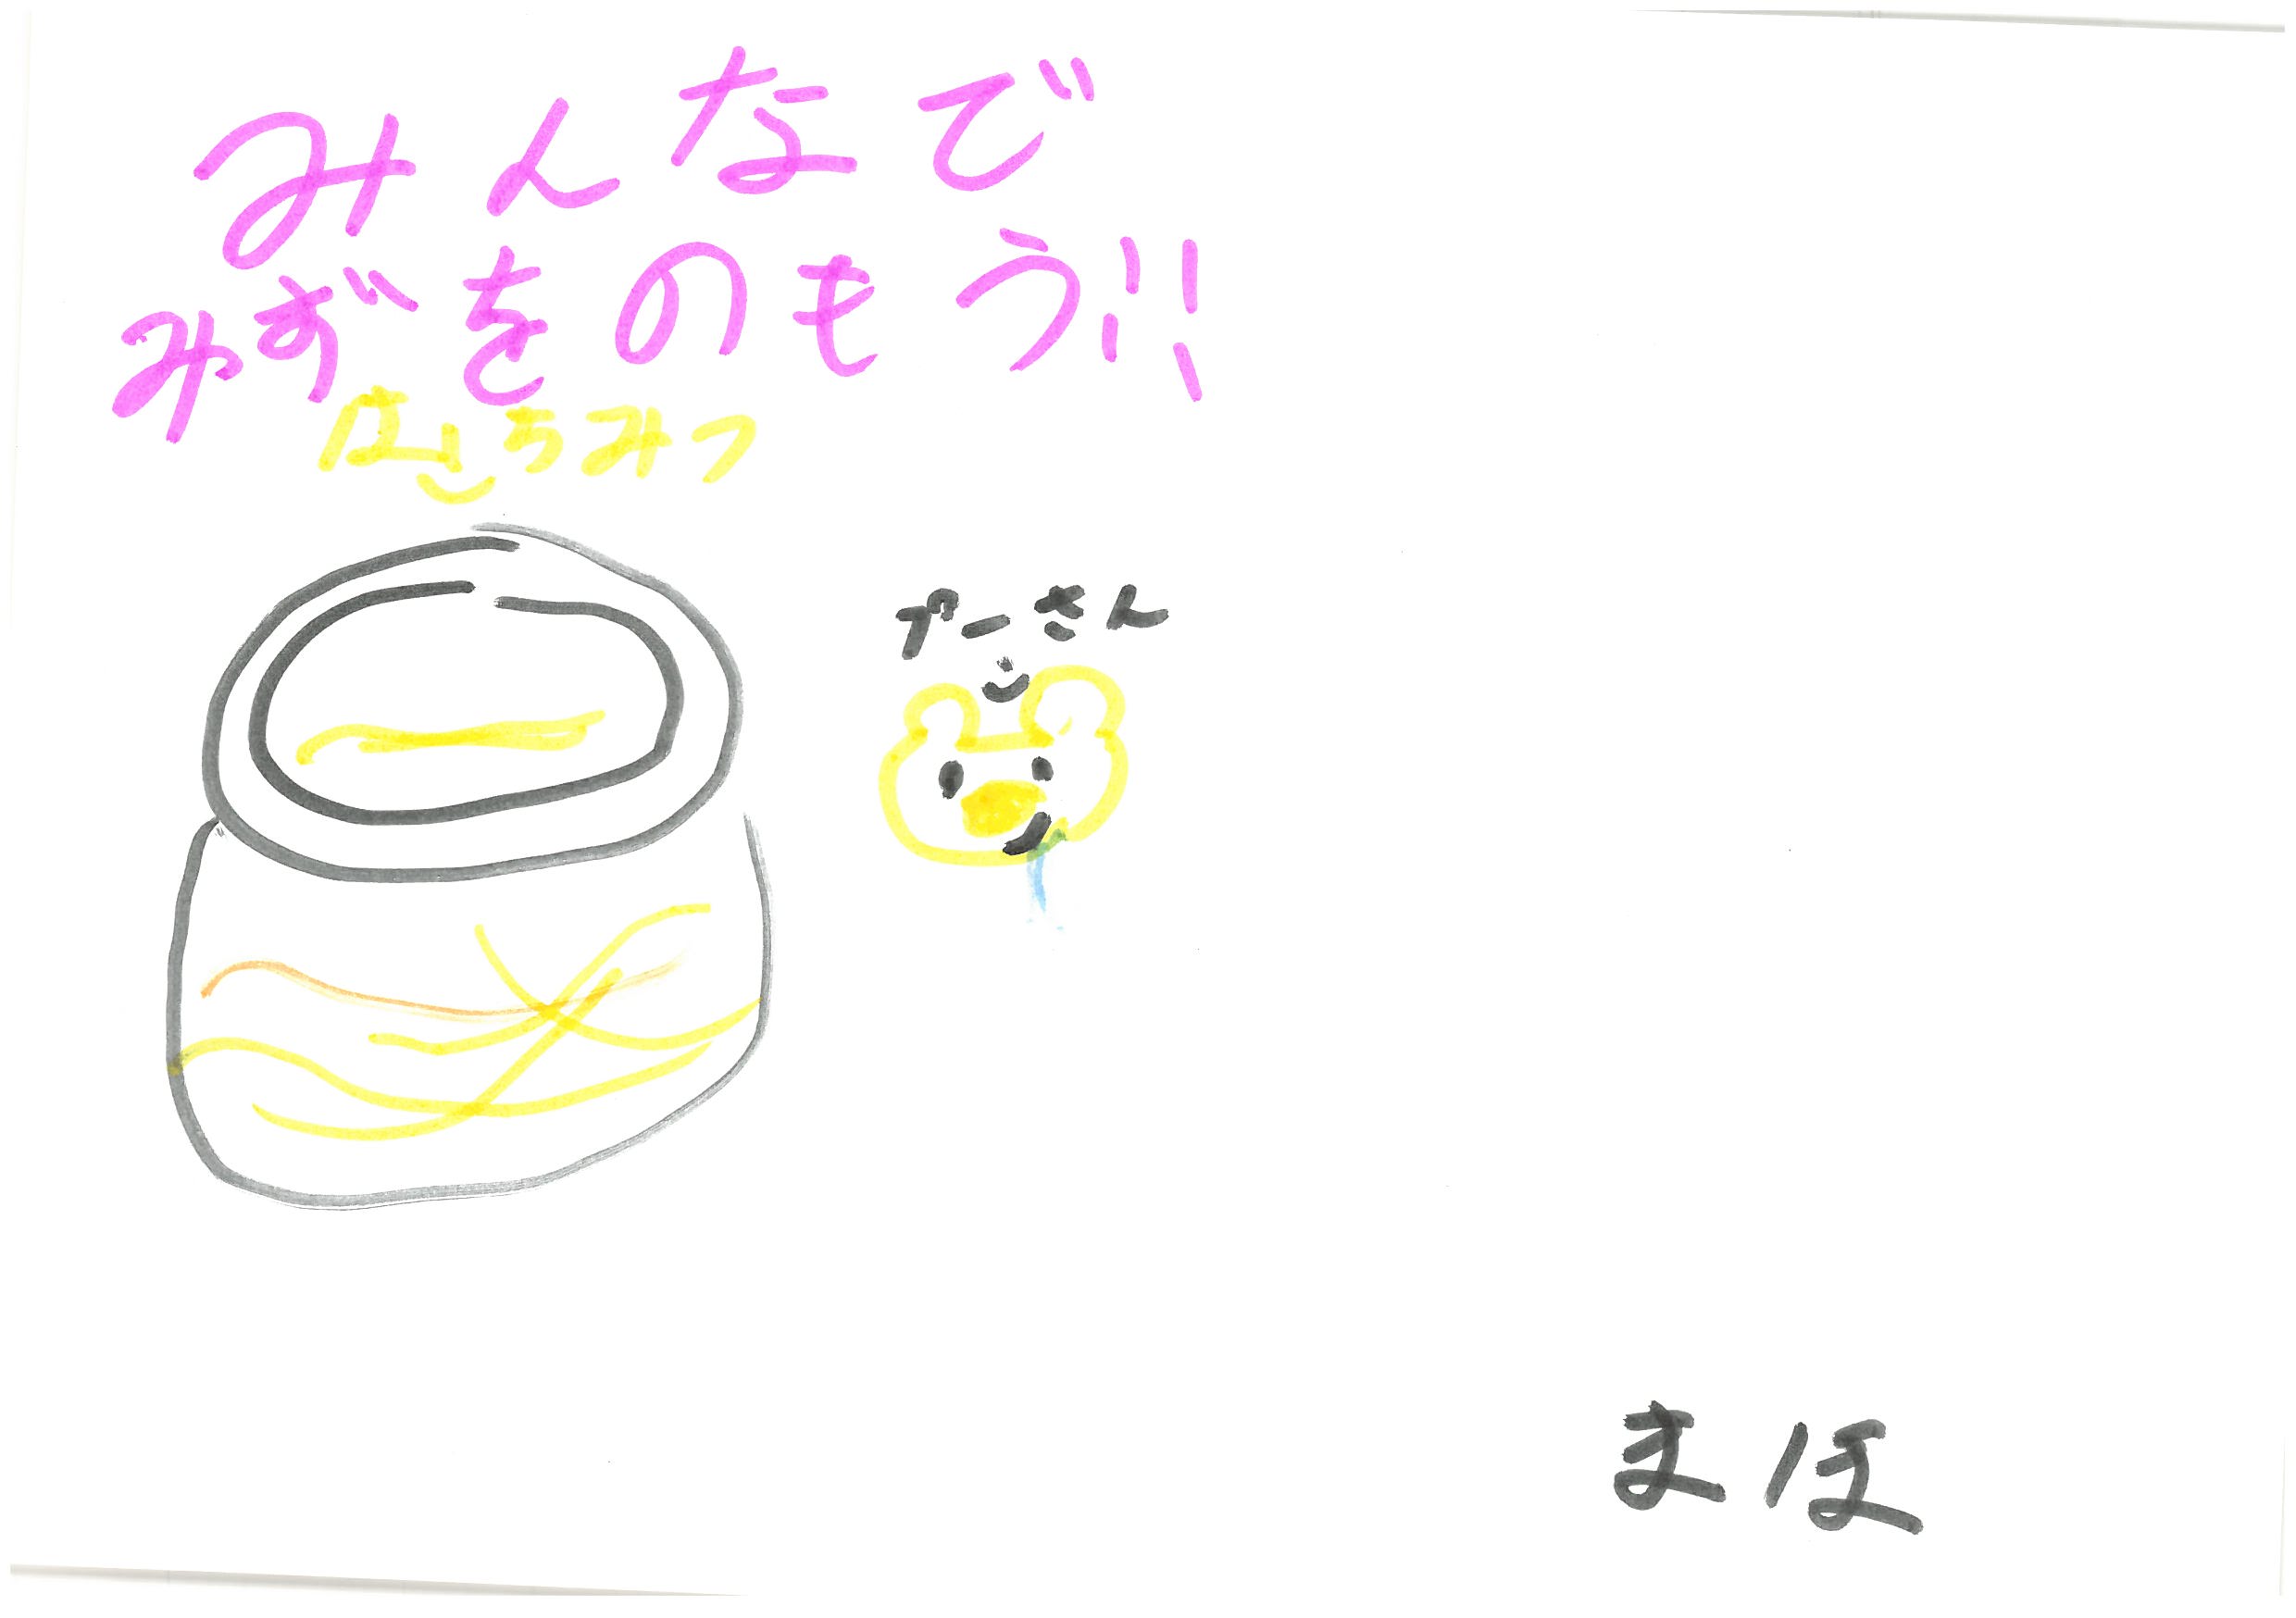 みんなで
みずをのもう!!
はちみつ
プーさん
まほ